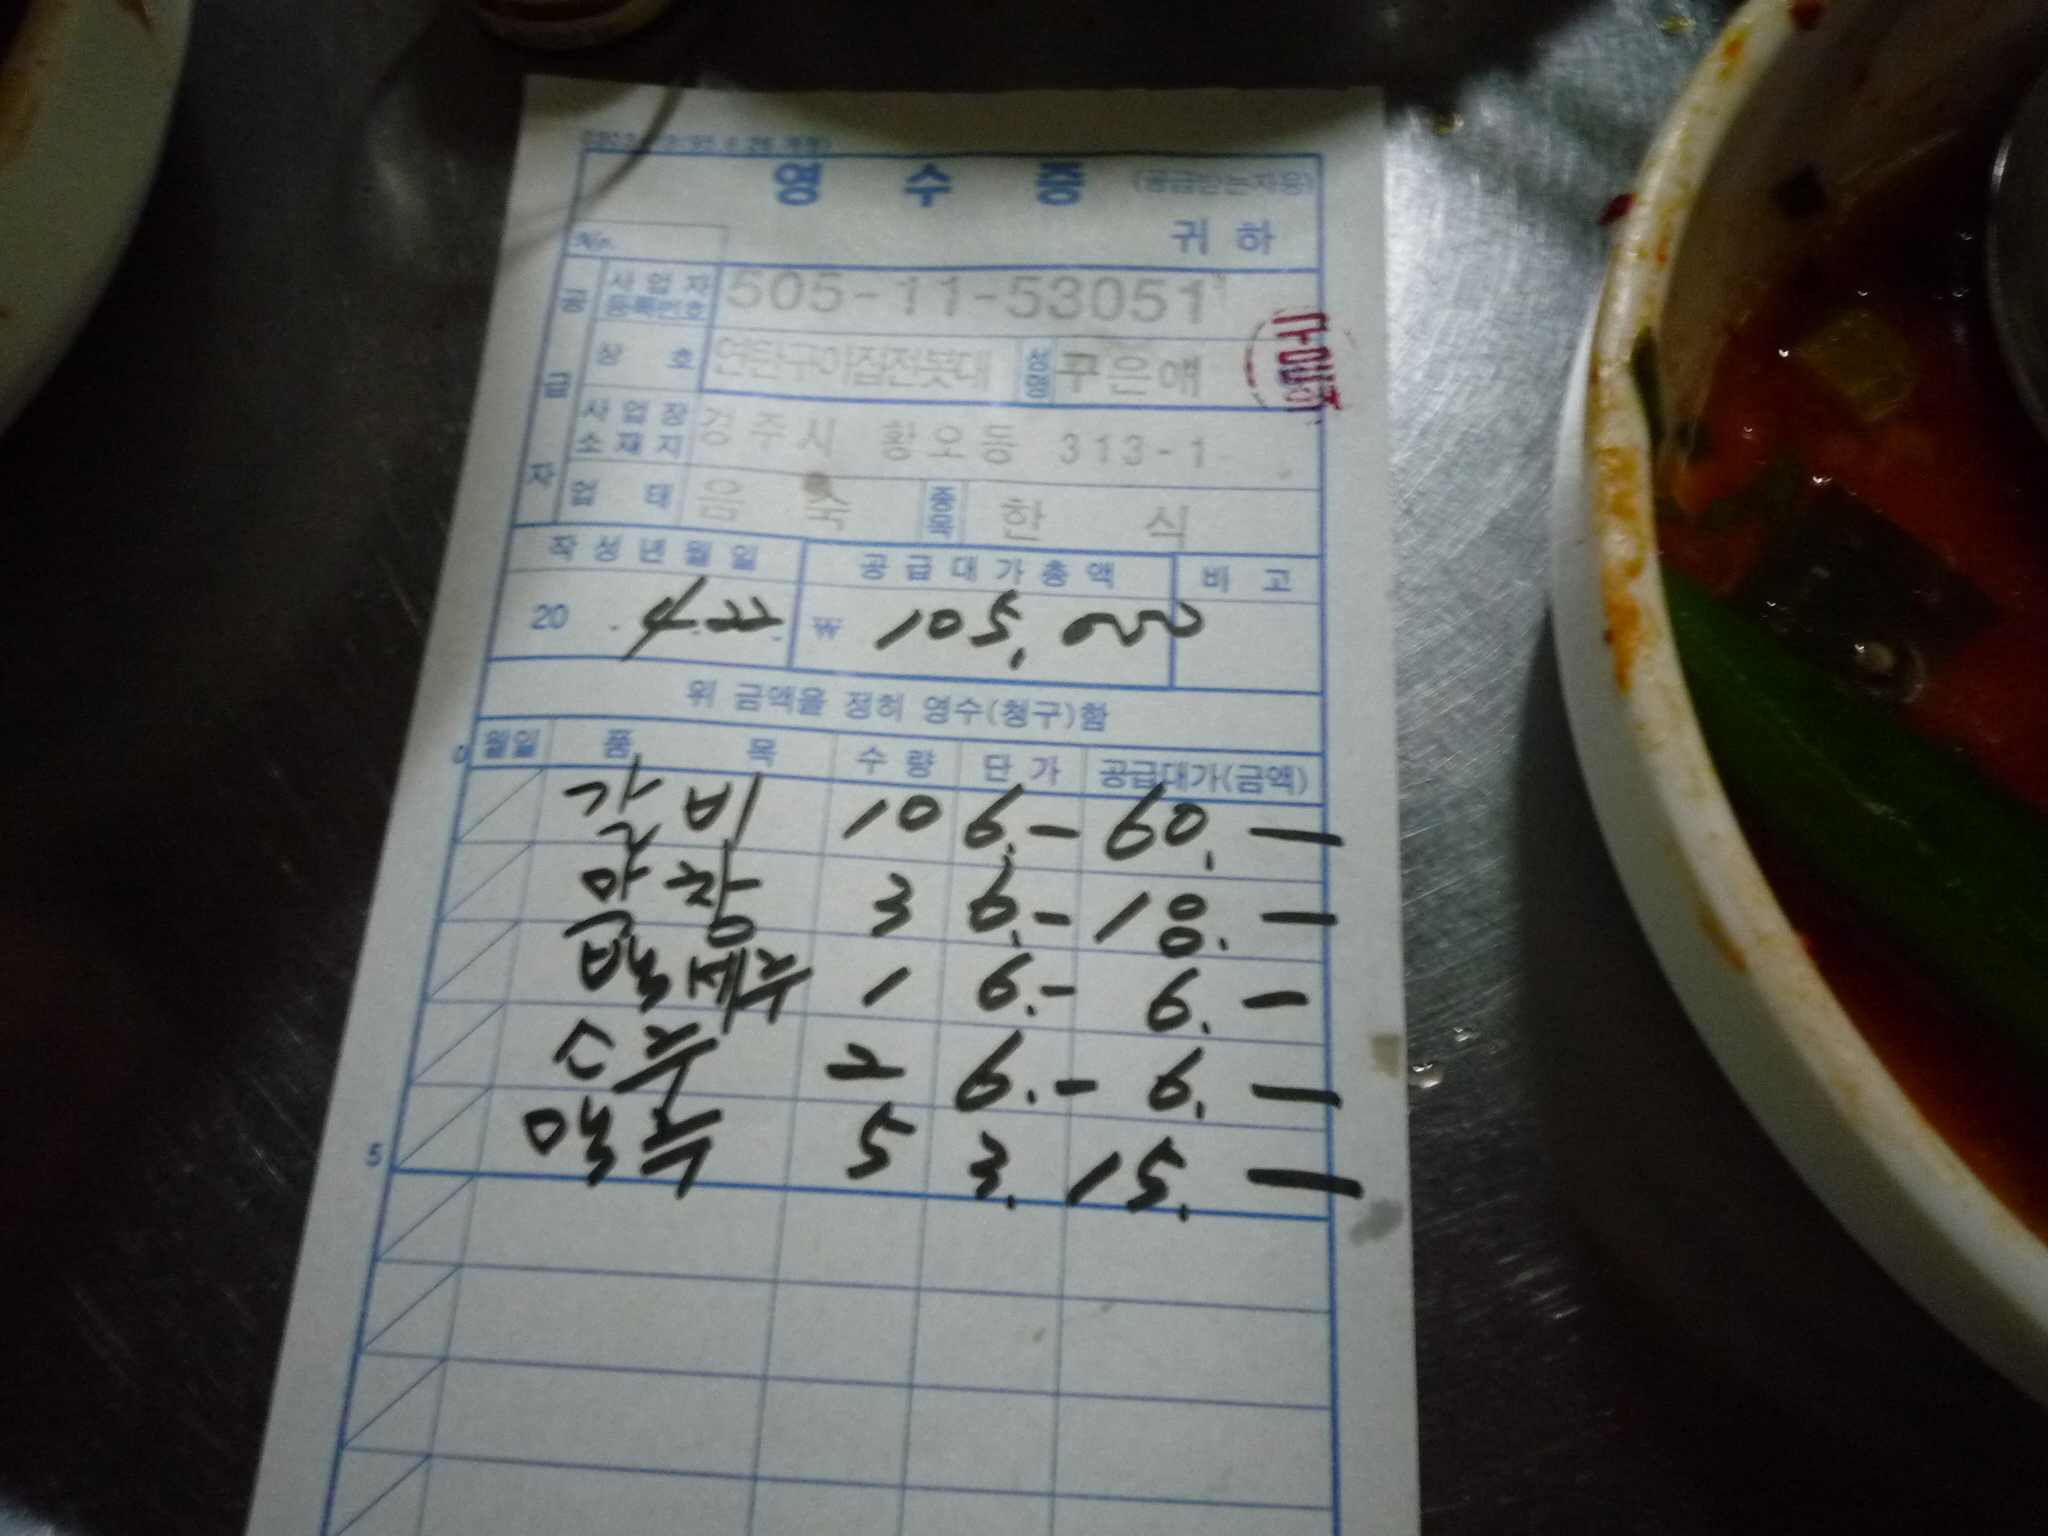 영 수 증 (공급받는자용)
No. 귀 하
공급자
사업자등록번호 505-11-53051
상 호 연탄구이집전봇대 성명 구은애
사업장소재지 경주시 황오동 313-1
업 태 음 숙 종목 한 식
작성년월일 공급대가총액 비 고
20 . 4. 22. ₩ 105,000
위 금액을 정히 영수(청구)함
월일 품 목 수량 단가 공급대가(금액)
갈비 10 6.- 60. -
3 6.- 18. -
1 6.- 6. -
소주 2 6.- 6. -
맥주 5 3. 15. -
5